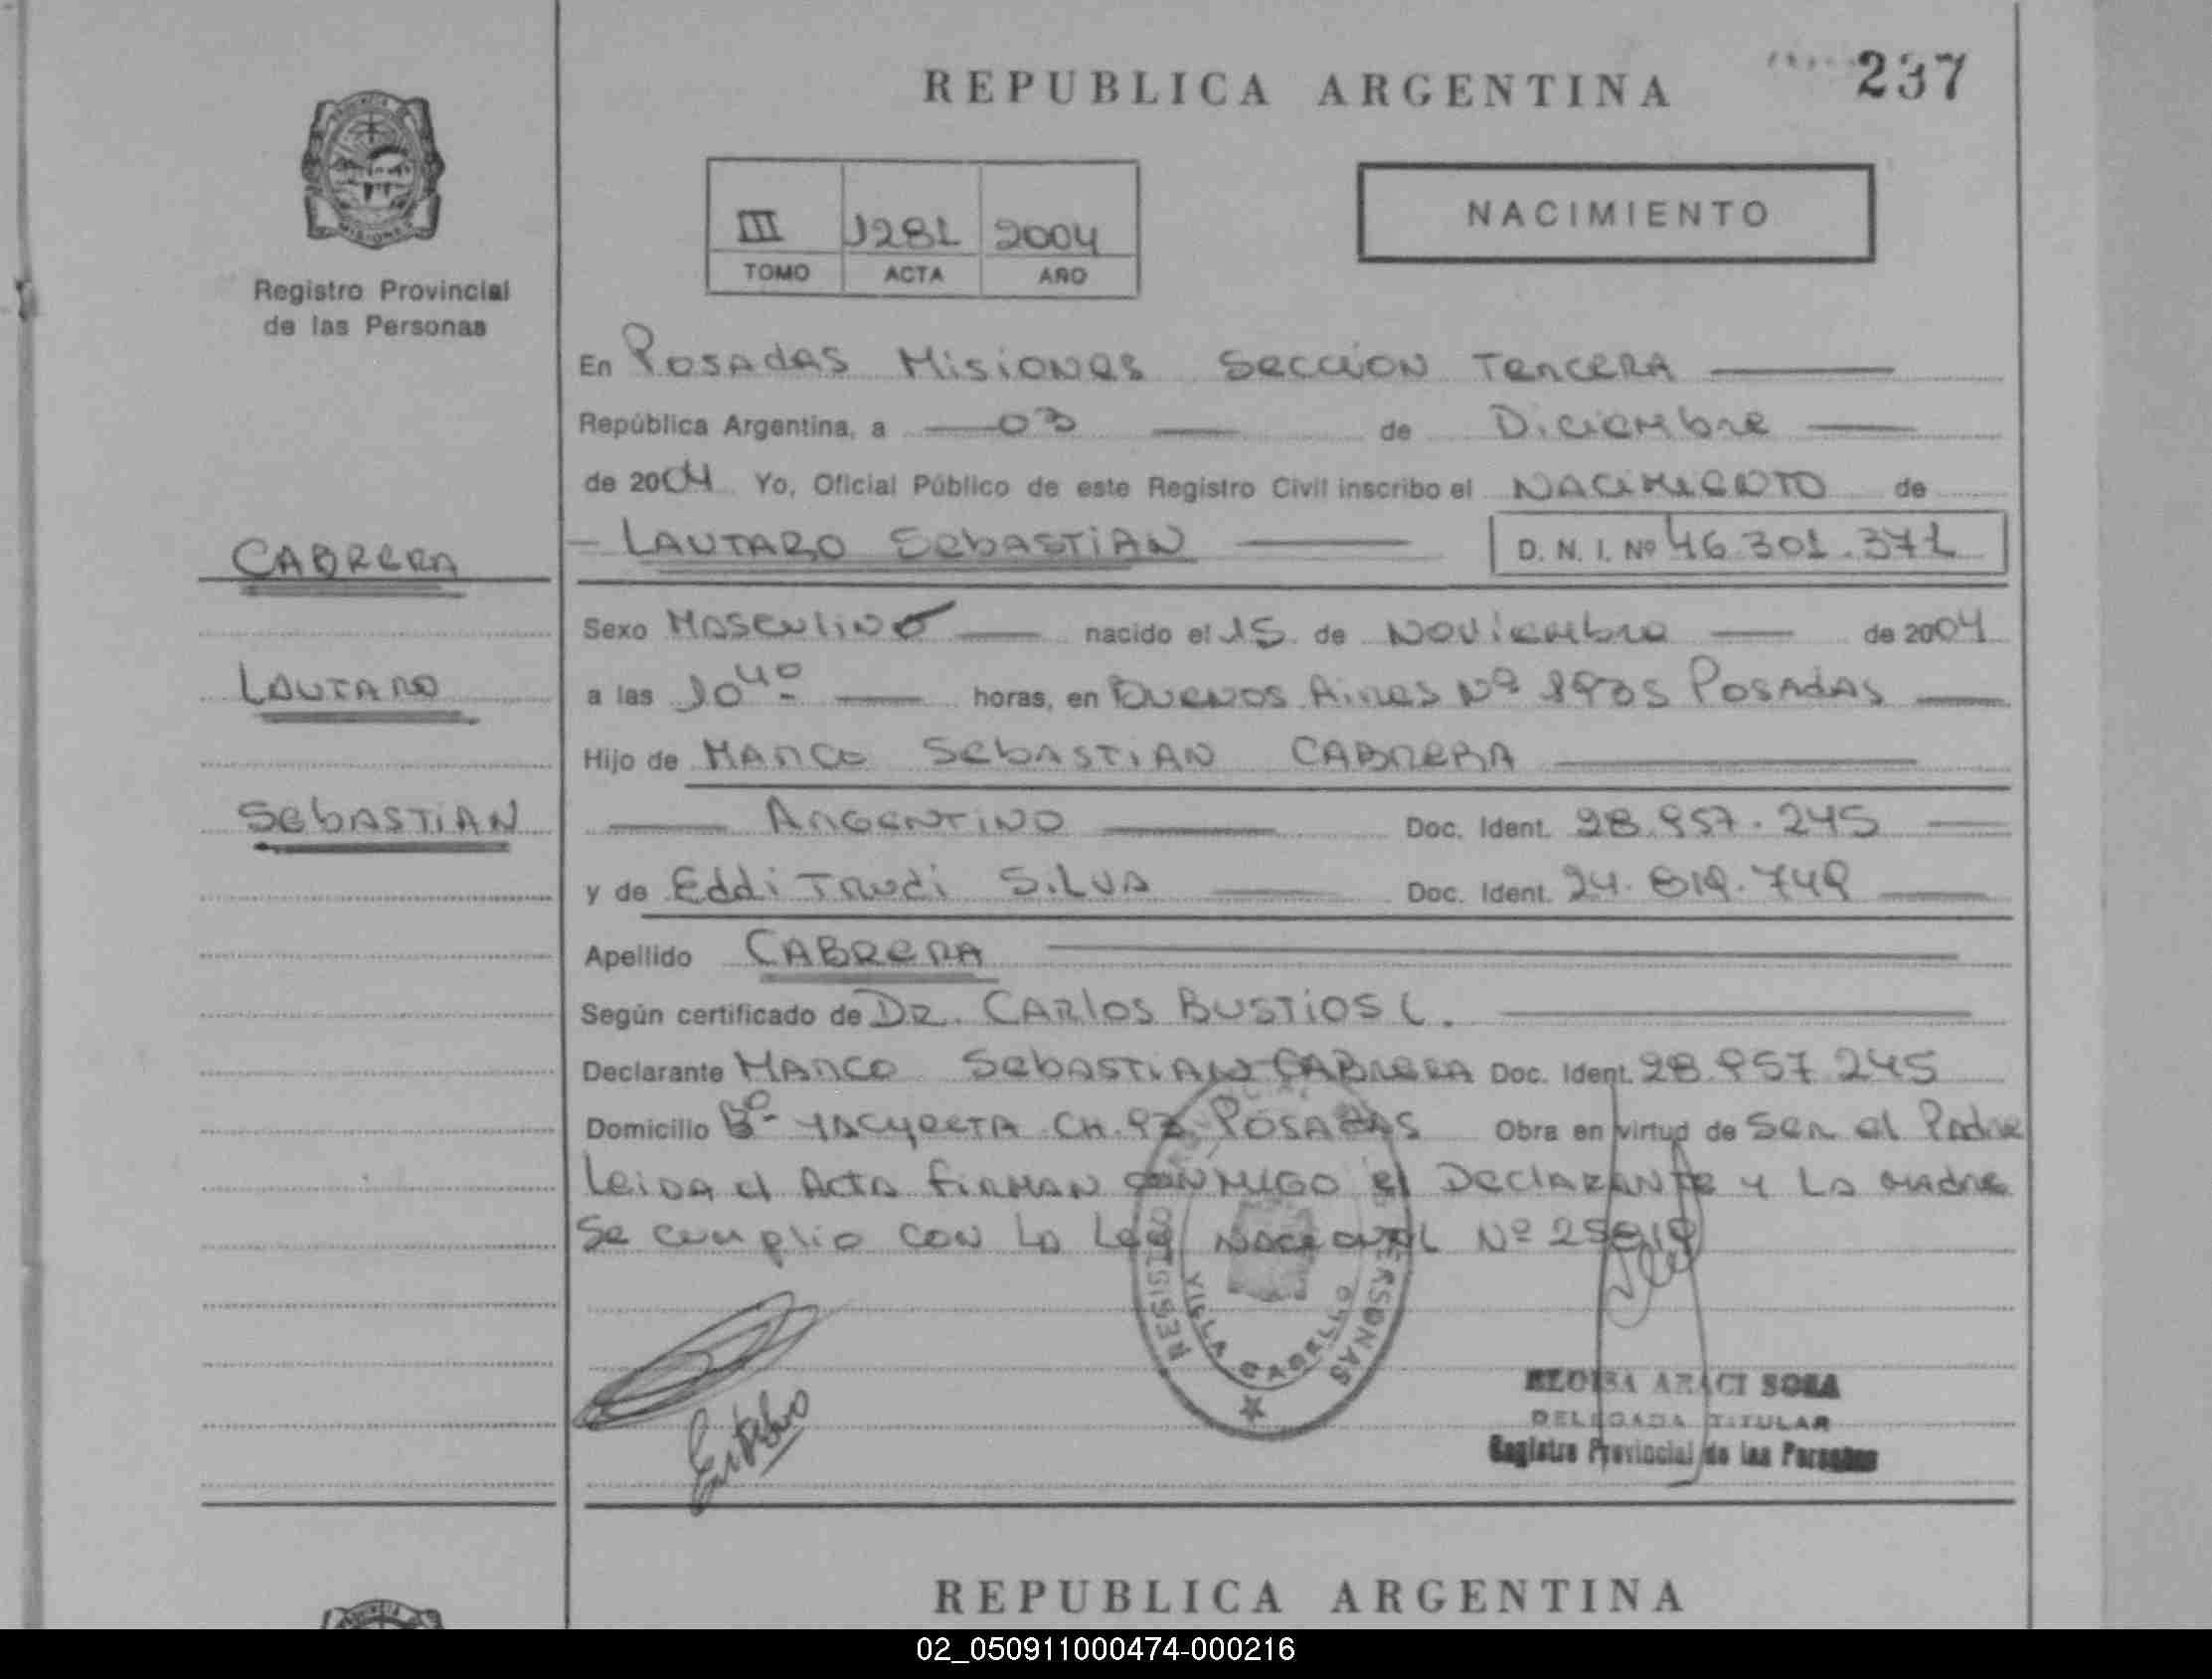 REPUBLICA ARGENTINA
237
III 1281 2004
TOMO ACTA AÑO
NACIMIENTO
MISIONES
Registro Provincial
de las Personas
CABRERA
LAUTARO
SEBASTIAN
En POSADAS MISIONES SECCION TERCERA
República Argentina, a 03 de Diciembre
de 2004 Yo, Oficial Público de este Registro Civil inscribo el NACIMIENTO de
LAUTARO SEBASTIAN D. N. I. Nº 46.301.371
Sexo MASCULINO nacido el 15 de NOVIEMBRE de 2004
a las 10 40 horas, en BUENOS AIRES Nº POSADAS
Hijo de MARCO SEBASTIAN CABRERA
ARGENTINO Doc. Ident. 28.957.245
y de Eddi TRUDI SILVA Doc. Ident. 24.819.749
Apellido CABRERA
Según certificado de DR. CARLOS BUSTIOS C.
Declarante MARCO SEBASTIAN CABRERA Doc. Ident. 28.957.245
Domicilio Bº YACYRETA CH. POSADAS Obra en virtud de Ser el Padre
Leida el Acta FIRMAN CONMIGO el DECLARANTE y LA MADRE
Se cumplio con la Ley NACIONAL Nº
REGISTRO PERSONAS
VILLA CABELLO
ELOISA ARACI SOSA
DELEGADA TITULAR
Registro Provincial de las Personas
REPUBLICA ARGENTINA
02_050911000474-000216